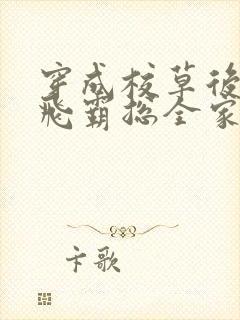 穿成校草後
飛霸總全家
卡歌